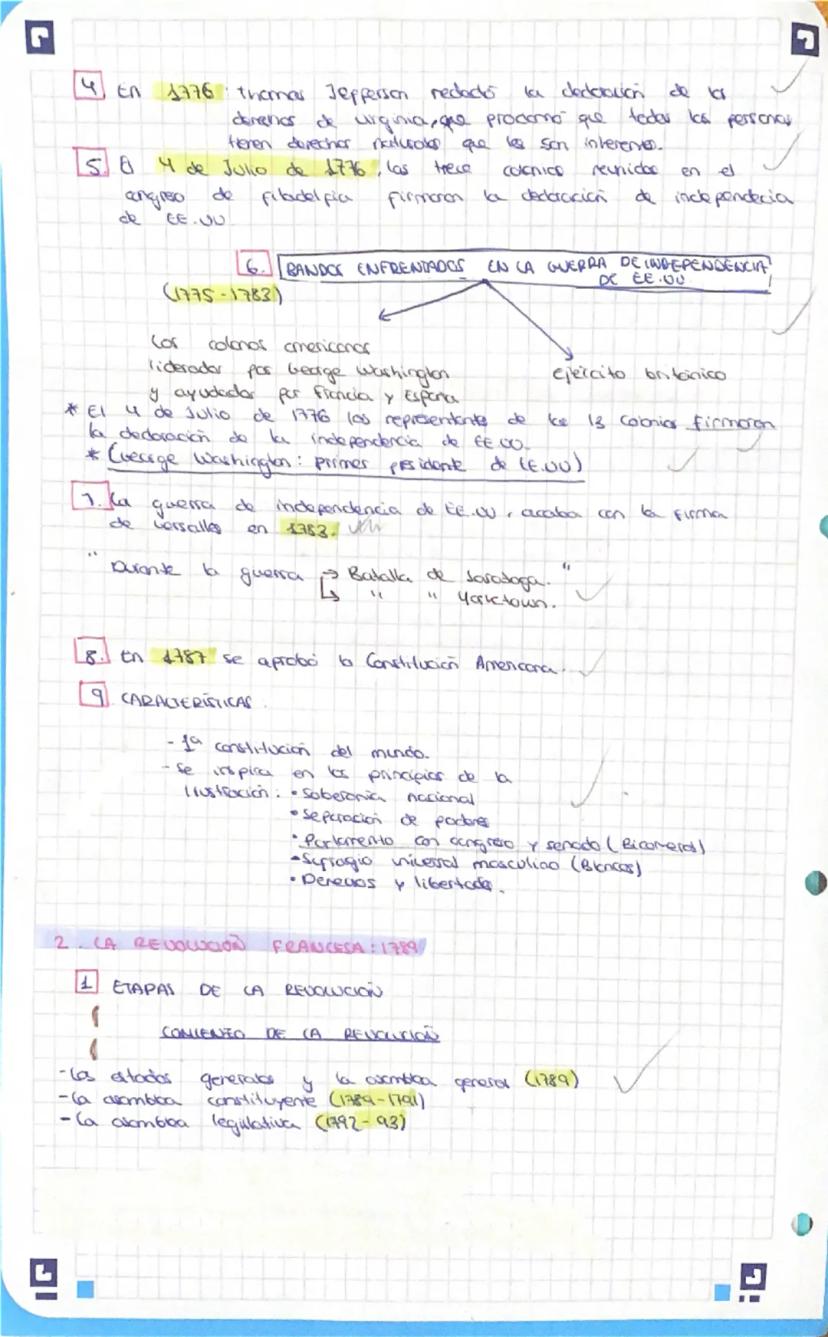 4 En 1776: thomas Jefferson redactó la declaración de los
derechos de virginia, que proclamó que todas las personas
tienen derechos naturales que les son inherentes.
5. El 4 de Julio de 1776, las trece colonias reunidas en el
congreso de filadelfia firmaron la declaración de independecia
de EE.UU
6. BANDOS ENFRENTADOS EN LA GUERRA DE INDEPENDENCIA
DE EE.UU
(1775-1783)
Los colonos americanos
liderados por George Washington
y ayudados por Francia y España
ejército británico
* El 4 de Julio de 1776 los representantes de las 13 colonias firmaron
la declaración de la independencia de EE.UU.
* (George Washington: primer presidente de EE.UU)
7. La guerra de independencia de EE.UU, acaba con la firma
de versalles en 1783.
" Durante la guerra → Batalla de Saratoga. "
↳ " " Yorktown.
8. En 1787 se aprobó la Constitución Americana.
9 CARACTERÍSTICAS.
- 1ª constitución del mundo.
- Se inspira en los principios de la
Ilustración: • Soberanía nacional
• Separación de poderes
• Parlamento con congreso y senado (Bicameral)
• Sufragio universal masculino (Blancos)
• Derechos y libertades.
2. LA REVOLUCIÓN FRANCESA: 1789
1 ETAPAS DE LA REVOLUCIÓN
COMIENZO DE LA REVOLUCIÓN
- Los estados generales y la asamblea general (1789)
- La asamblea constituyente (1789-1791)
- La asamblea legislativa (1792-93)